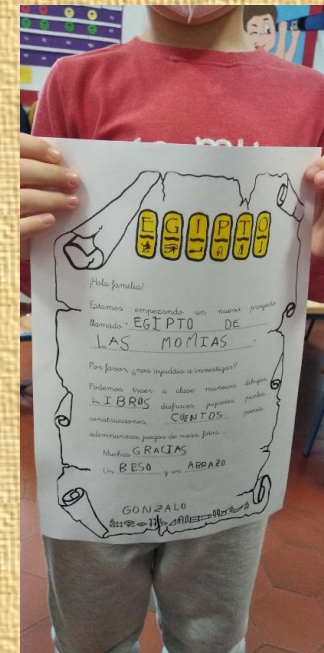 EGIPTO
¡Hola familia!
Estamos empezando un nuevo proyecto
llamado: EGIPTO DE
LAS MOMIAS.
Por favor, ¿nos ayudáis a investigar?
Podemos traer a clase: muñecos, dibujos,
LIBROS disfraces, juguetes, puzles,
construcciones, CUENTOS poesías,
adivinanzas, juegos de mesa, fotos...
Muchas GRACIAS
Un BESO y un ABRAZO
GONZALO